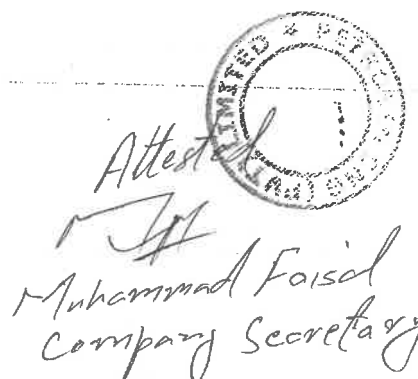 LIMITED
(PVT)
Attested
Muhammad Faisal
Company Secretary